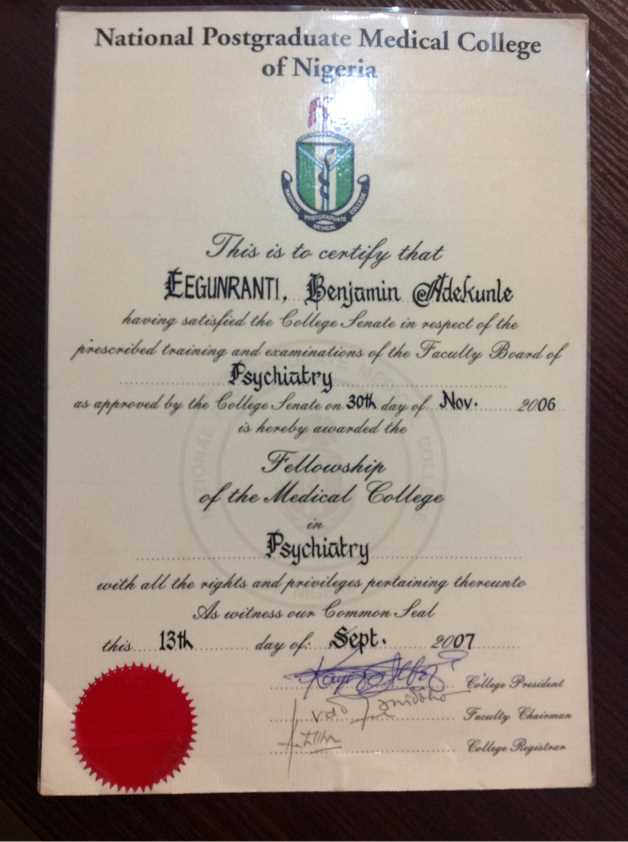 National Postgraduate Medical College
of Nigeria
NATIONAL POSTGRADUATE COLLEGE
MEDICAL
This is to certify that
EEGUNRANTI, Benjamin Adekunle
having satisfied the College Senate in respect of the
prescribed training and examinations of the Faculty Board of
Psychiatry
as approved by the College Senate on 30th day of Nov. 2006
is hereby awarded the
Fellowship
of the Medical College
in
Psychiatry
with all the rights and privileges pertaining thereunto
As witness our Common Seal
this 13th day of: Sept. 2007
College President
Faculty Chairman
College Registrar